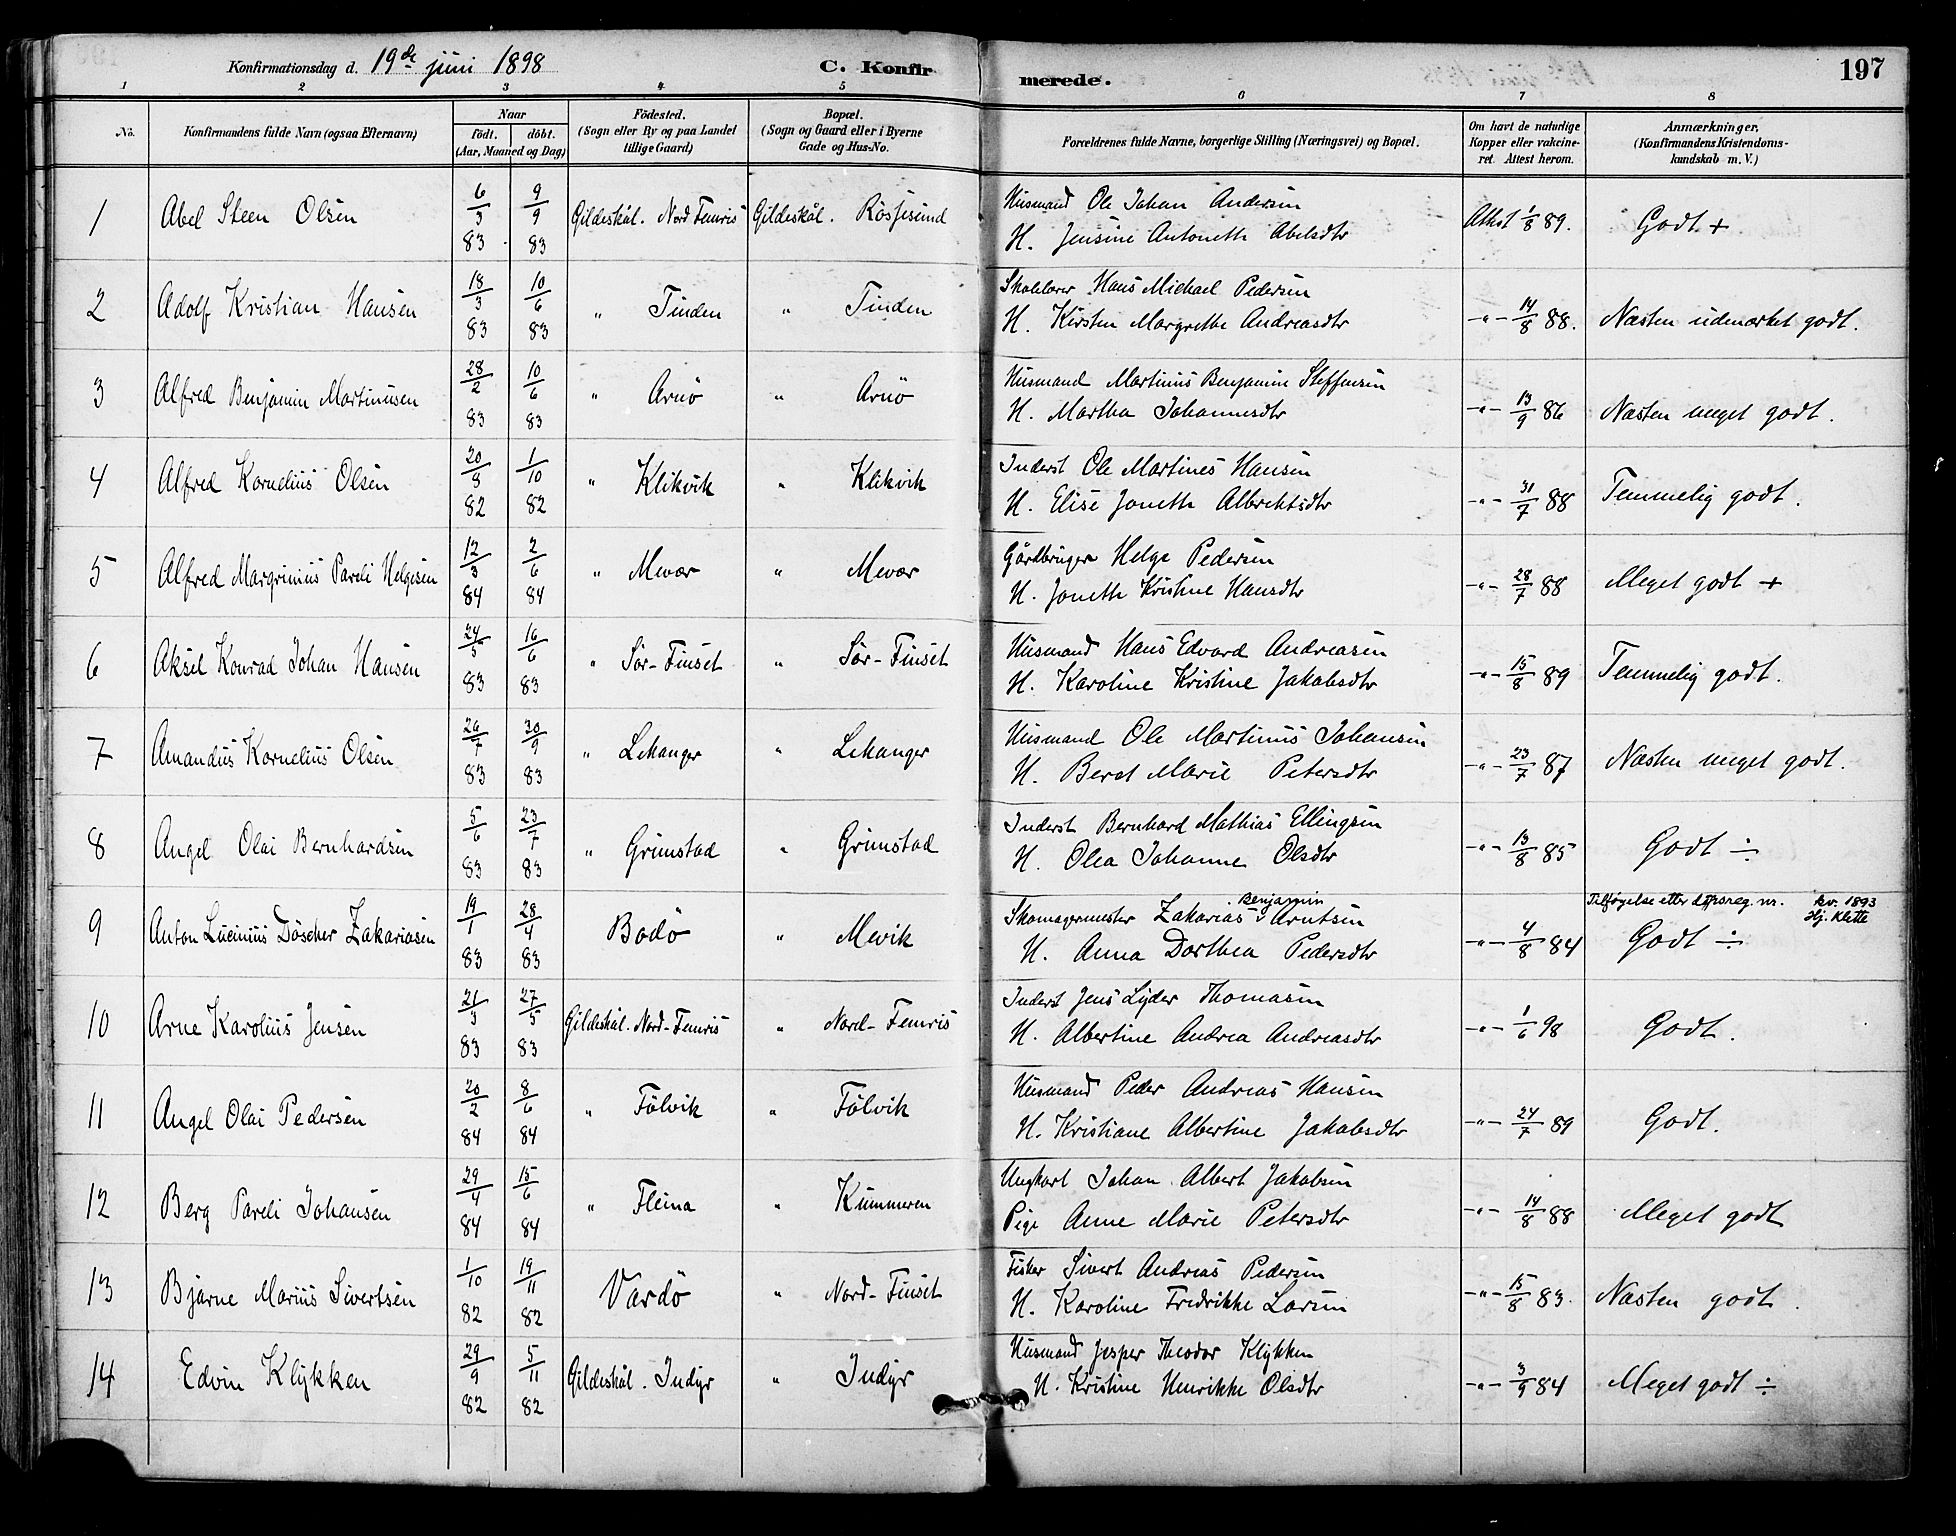 Konfirmationsdag d. 19de juni 1898
C. Konfirmerede.
197
1 2 3 4 5 6 7 8
No. Konfirmandens fulde Navn (ogsaa Efternavn) Naar födt. döbt. (Aar, Maaned og Dag) Födested. (Sogn eller By og paa Landet tillige Gaard) Bopæl. (Sogn og Gaard eller i Byerne Gade og Hus-No. Forældrenes fulde Navne, borgerlige Stilling (Næringsvei) og Bopæl. Om havt de naturlige Kopper eller vakcineret. Attest herom. Anmærkninger. (Konfirmandens Kristendomskundskab m. V.)
1 Abel Steen Olsen 6/3 83 9/9 83 Gildeskål. Nord Femris Gildeskål. Rössesund Husmand Ole Johan Andersen
H. Jensine Antonette Abelsdtr Attest 1/8 89. Godt +
2 Adolf Kristian Hansen 18/3 83 10/6 83 " Tinden " Tinden Skolelærer Hans Michael Pedersen
H. Kirsten Margrethe Andreasdtr -"- 14/8 88. Næsten udmærket godt.
3 Alfred Benjamin Martinusen 28/2 83 10/6 83 " Arnö " Arnö Husmand Martinus Benjamin Steffensen
H. Martha Johannesdtr -"- 13/9 86 Næsten meget godt.
4 Alfred Kornelius Olsen 20/8 82 1/10 82 " Klikvik " Klikvik Inderst Ole Martines Hansen
H. Elise Jonette Albrektsdtr -"- 31/7 88 Temmelig godt.
5 Alfred Margrinius Pareli Helgesen 12/3 84 2/6 84 " Mevær " Mevær Gårdbruger Helge Pedersen
H. Jonette Kristine Hansdtr -"- 28/7 88 Meget godt +
6 Aksel Konrad Johan Hansen 24/5 83 16/6 83 " Sör-Finset " Sör-Finset Husmand Hans Edvard Andreasen
H. Karoline Kristine Jakobsdtr -"- 15/8 89 Temmelig godt.
7 Amandus Kornelius Olsen 26/7 83 30/9 83 " Lekanger " Lekanger Husmand Ole Martinus Johansen
H. Beret Marie Petersdtr -"- 23/7 87 Næsten meget godt.
8 Angel Olai Bernhardsen 5/6 83 23/7 83 " Grimstad " Grimstad Inderst Bernhard Mathias Ellingsen
H. Olea Johanne Olsdtr -"- 13/8 85 Godt ÷
9 Anton Lucinius Döscher Zakariasen 19/1 83 28/4 83 Bodö " Mevik Skomagermester Zakarias Benjamin Arntsen
H. Anna Dorthea Pedersdtr -"- 4/8 84 Tilføyelse etter dåpsreg. nr. kv. 1893
Hj. Klette
Godt ÷
10 Arne Karolius Jensen 21/3 83 27/5 83 Gildeskål. Nord-Femris " Nord-Femris Inderst Jens Lyder Thomasen
H. Albertine Andrea Andreasdtr -"- 1/6 98 Godt.
11 Angel Olai Pedersen 20/2 84 8/6 84 " Fölvik " Fölvik Husmand Peder Andreas Hansen
H. Kristiane Albertine Jakobsdtr -"- 24/7 89 Godt.
12 Berg Pareli Johansen 29/4 84 15/6 84 " Fleina " Kummeren Ungkarl Johan Albert Jakobsen
Pige Anne Marie Petersdtr -"- 14/8 88 Meget godt
13 Bjarne Marius Sivertsen 1/10 82 19/11 82 Vardö " Nord-Finset Fisker Sivert Andreas Pedersen
H. Karoline Fredrikke Larsen -"- 15/8 83. Næsten godt.
14 Edvin Klykken 29/9 82 5/11 82 Gildeskål. Indyr " Indyr Husmand Jesper Theodor Klykken
H. Kristine Henrikke Olsdtr -"- 3/9 84 Meget godt ÷